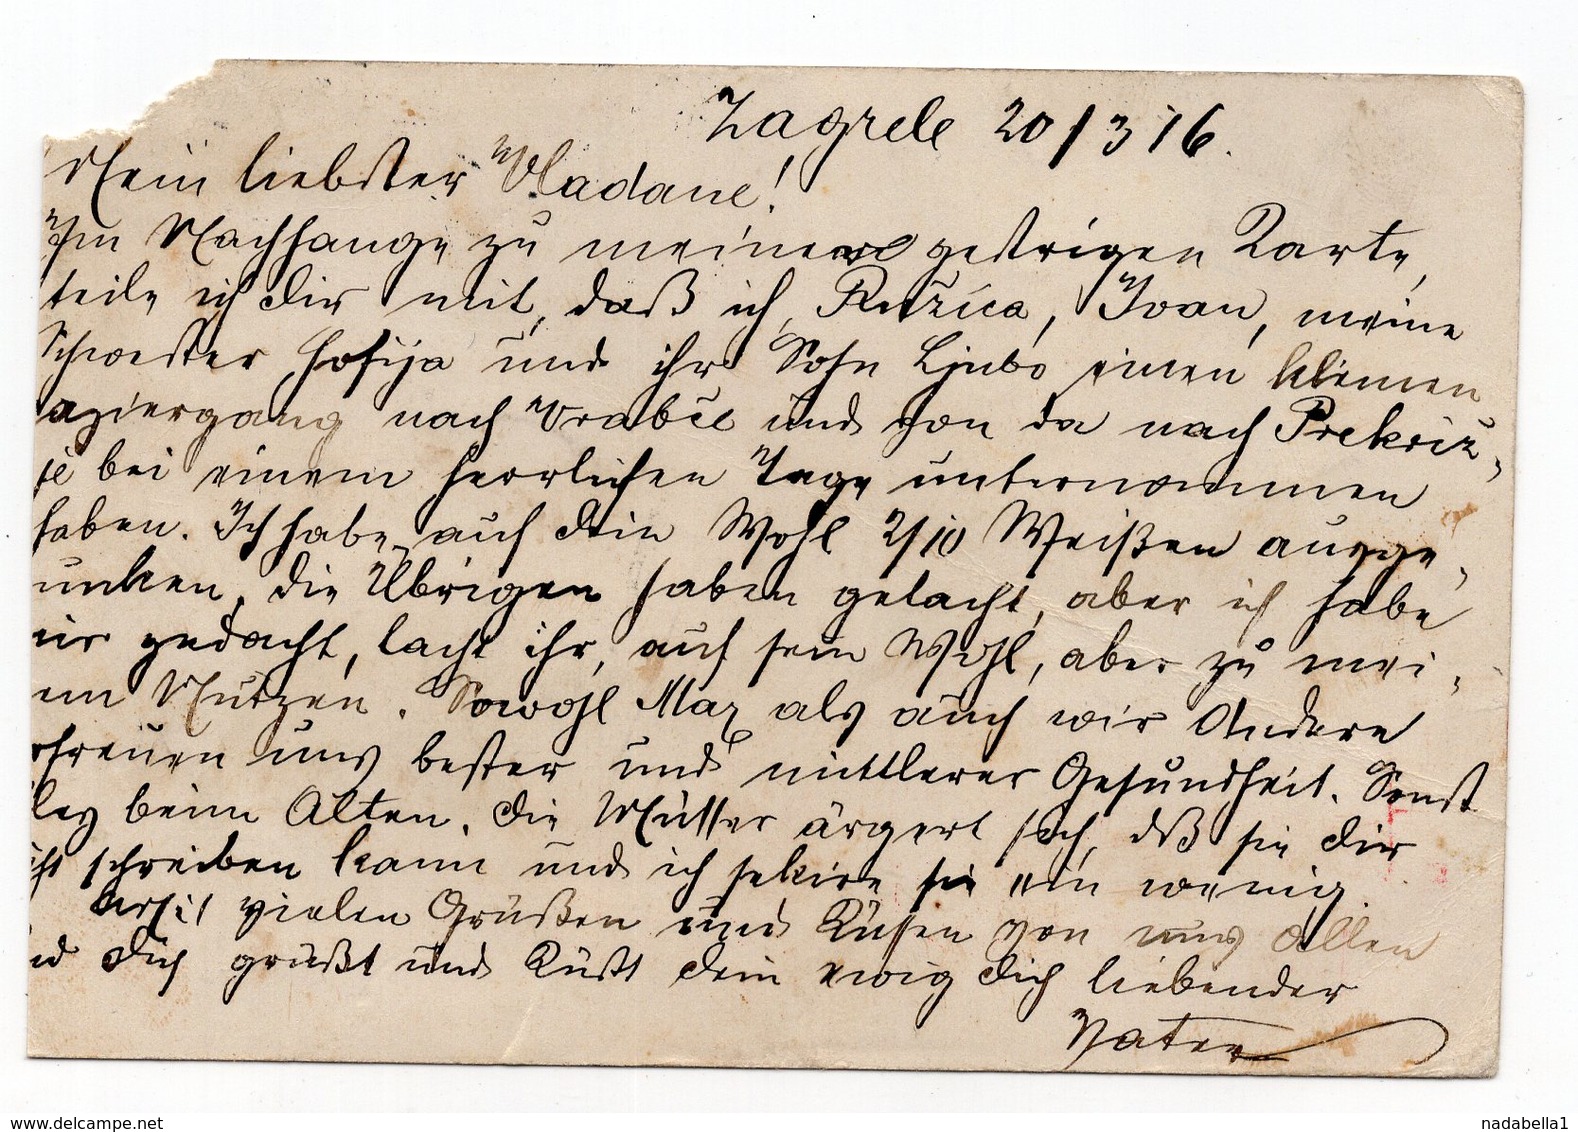 Zagreb 20/3 16.
Mein liebster Vladane!
Im Nachhange zu meiner gestrigen Karte,
teile ich dir mit, daß ich, Ružica, Ivan, meine
Schwester Sofija und ihr Sohn Ljubo einen kleinen
aziergang nach Vrabče und von da nach Prekriž-
je bei einem herrlichen Tage unternommen
haben. Ich habe auf dein Wohl 2/10 Weißen ausge-
unken, die Übrigen haben gelacht, aber ich habe
ir gedacht, lacht ihr, auf sein Wohl, aber zu mei-
em Nutzen. Sowohl Max als auch wir Andere
rfreuen uns bester und mittlerer Gesundheit. Sonst
lles beim Alten. Die Mutter ärgert sich, dß sie dir
icht schreiben kann und ich sekire sie ein wenig.
vielen Grüßen und Küssen von uns Allen
nd dich grüßt und küßt dein ewig dich liebender
Vater
www.delcampe.net
nadabella1